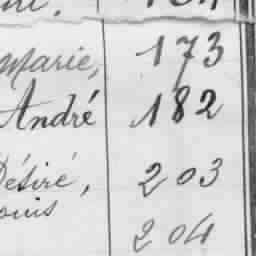 Marie, 173
André 182
Désiré, 203
ouis
204